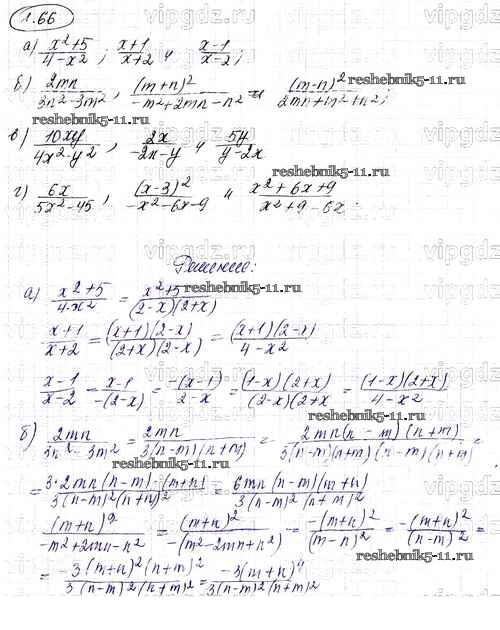 1.66
а) x²+5/4-x² ; x+1/x+2 и x-1/x-2 ;
б) 2mn/3n²-3m² , (m+n)²/-m²+2mn-n² и (m-n)²/2mn+m²+n² ;
в) 10xy/4x²-y² , 2x/-2x-y и 5y/y-2x
г) 6x/5x²-45 , (x-3)²/-x²-6x-9 и x²+6x+9/x²+9-6x .
Решение:
а) x²+5/4-x² = x²+5/(2-x)(2+x)
x+1/x+2 = (x+1)(2-x)/(2+x)(2-x) = (x+1)(2-x)/4-x²
x-1/x-2 = x-1/-(2-x) = -(x-1)/2-x = (1-x)(2+x)/(2-x)(2+x = (1-x)(2+x)/4-x²
б) 2mn/3n²-3m² = 2mn/3(n-m)(n+m) = 2mn(n-m)(n+m)/3(n-m)(n+m)(n-m)(n+m) =
= 3·2mn(n-m)·(m+n)/3(n-m)²(n+m)² = 6mn(n-m)(m+n)/3(n-m)²(n+m)²
(m+n)²/-m²+2mn-n² = (m+n)²/-(m²-2mn+n²) = -(m+n)²/(m-n)² = -(m+n)²/(n-m)² =
= -3(m+n)²(n+m)²/3(n-m)²(n+m)² = -3(m+n)⁴/3(n-m)²(n+m)²
vipgdz.ru
reshebnik5-11.ru